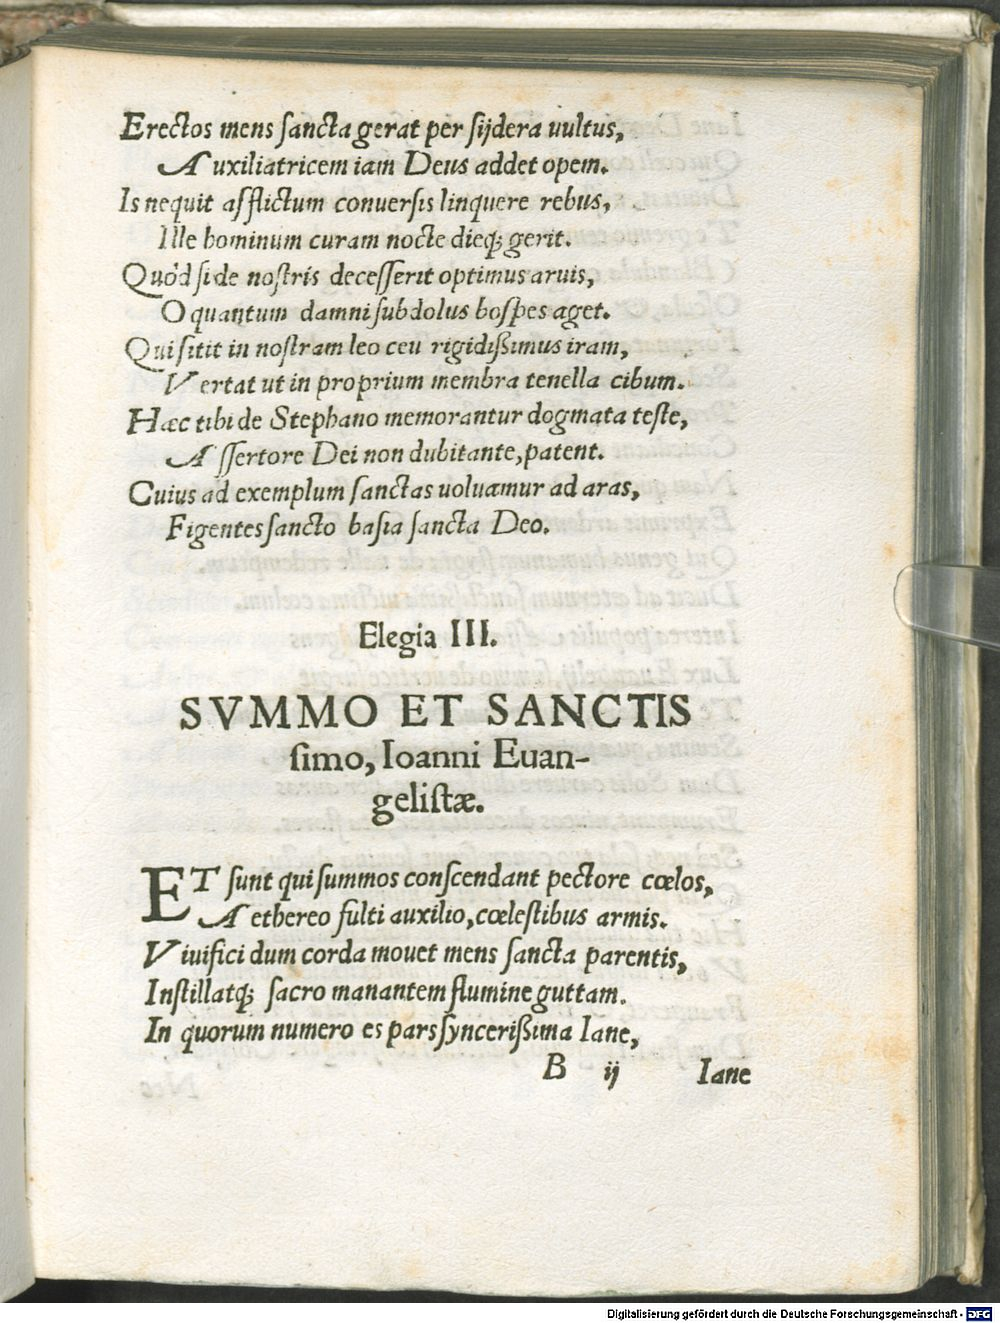 Erectos mens sancta gerat per sijdera uultus,
Auxiliatricem iam Deus addet opem.
Is nequit afflictum conuersis linquere rebus,
Ille hominum curam nocte dieq; gerit.
Quòd si de nostris decesserit optimus aruis,
O quantum damni subdolus hospes aget.
Qui sitit in nostram leo ceu rigidißimus iram,
Vertat ut in proprium membra tenella cibum.
Hæc tibi de Stephano memorantur dogmata teste,
Assertore Dei non dubitante, patent.
Cuius ad exemplum sanctas uoluamur ad aras,
Figentes sancto basia sancta Deo.
Elegia III.
SVMMO ET SANCTIS
simo, Ioanni Euan-
gelistæ.
ET sunt qui summos conscendant pectore cœlos,
Aethereo fulti auxilio, cœlestibus armis.
Viuifici dum corda mouet mens sancta parentis,
Instillatq; sacro manantem flumine guttam.
In quorum numero es pars syncerißima Iane,
B ij Iane
Digitalisierung gefördert durch die Deutsche Forschungsgemeinschaft - DFG